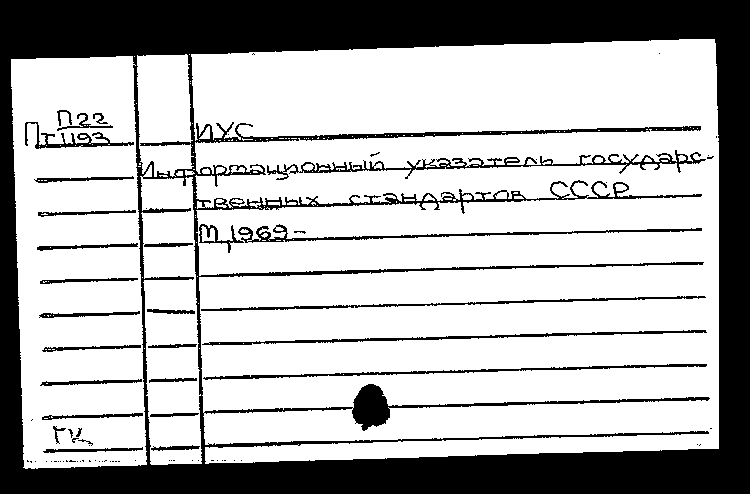 П22
Пт1193
ИУС
Информационный указатель государс-
твенных стандартов СССР
М, 1969-
ГК